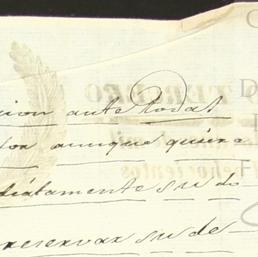 cion ante todas
tor aunque quiera
diatamente su do
reservar su de